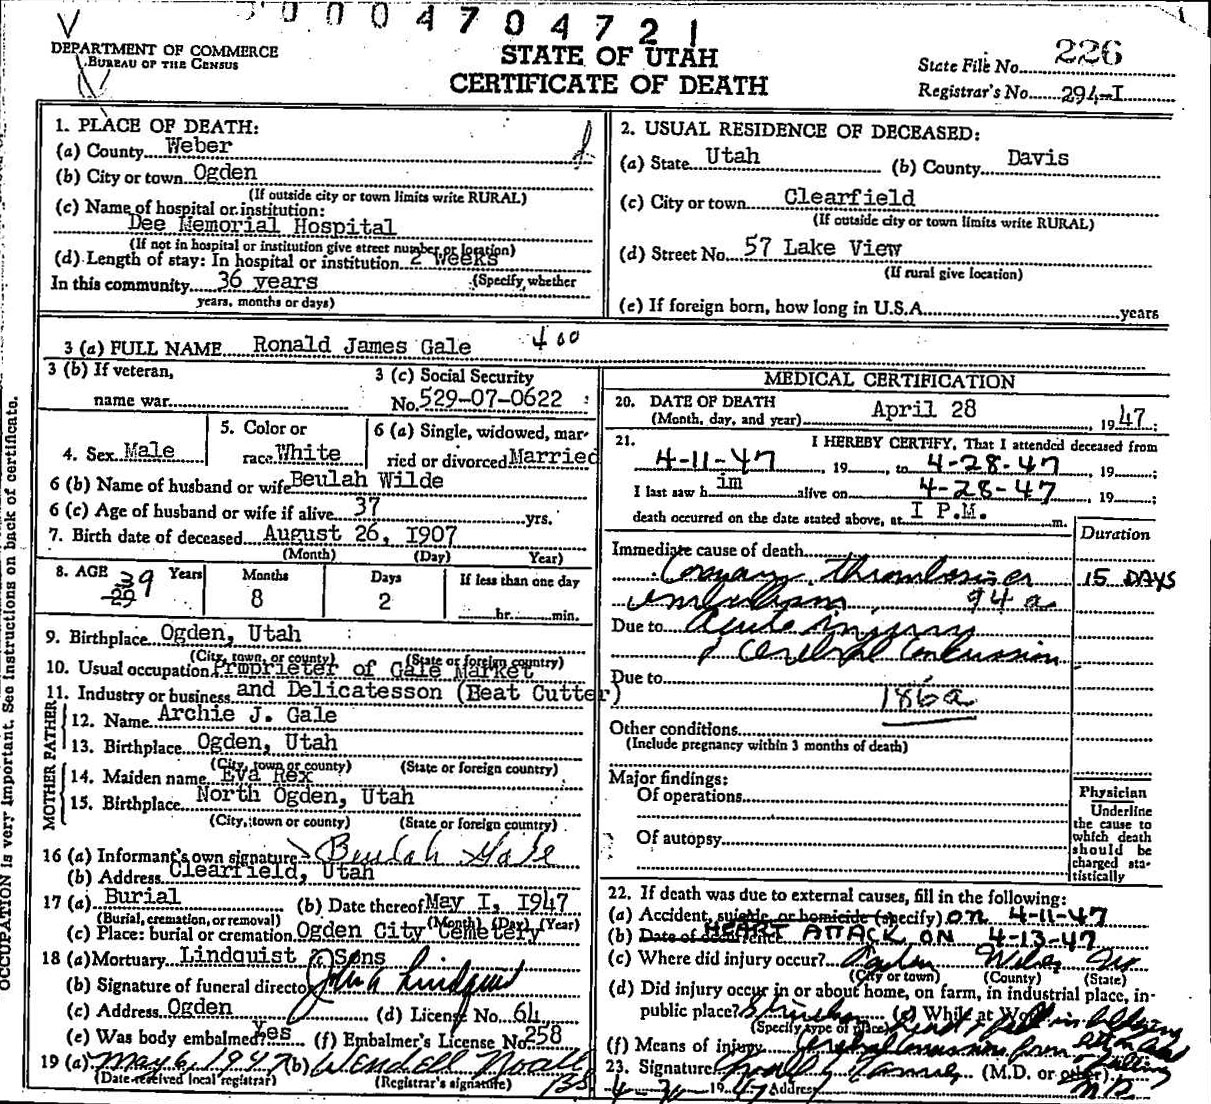 0004704721
DEPARTMENT OF COMMERCE
BUREAU OF THE CENSUS
STATE OF UTAH
CERTIFICATE OF DEATH
State File No. 226
Registrar's No. 294-I
1. PLACE OF DEATH:
(a) County Weber
(b) City or town Ogden
(If outside city or town limits write RURAL)
(c) Name of hospital or institution:
Dee Memorial Hospital
(If not in hospital or institution give street number or location)
(d) Length of stay: In hospital or institution 2 Weeks
In this community 36 years (Specify whether
years, months or days)
2. USUAL RESIDENCE OF DECEASED:
(a) State Utah (b) County Davis
(c) City or town Clearfield
(If outside city or town limits write RURAL)
(d) Street No. 57 Lake View
(If rural give location)
(e) If foreign born, how long in U.S.A. years
3 (a) FULL NAME Ronald James Gale 400
3 (b) If veteran,
name war
3 (c) Social Security
No. 529-07-0622
4. Sex Male
5. Color or
race White
6 (a) Single, widowed, mar-
ried or divorced Married
6 (b) Name of husband or wife Beulah Wilde
6 (c) Age of husband or wife if alive 37 yrs.
7. Birth date of deceased August 26, I907
(Month) (Day) Year)
8. AGE 39 Years Months 8 Days 2 If less than one day
hr. min.
9. Birthplace Ogden, Utah
(City, town, or county) (State or foreign country)
10. Usual occupation Proprieter of Gale Market
11. Industry or business and Delicatesson (Beat Cutter)
FATHER
12. Name Archie J. Gale
13. Birthplace Ogden, Utah
(City, town or county) (State or foreign country)
MOTHER
14. Maiden name Eva Rex
15. Birthplace North Ogden, Utah
(City, town or county) (State or foreign country)
16 (a) Informant's own signature Beulah Gale
(b) Address Clearfield, Utah
17 (a) Burial (b) Date thereof May I, I947
(Burial, cremation, or removal) (Month) (Day) (Year)
(c) Place: burial or cremation Ogden City Cemetery
18 (a) Mortuary Lindquist & Sons
(b) Signature of funeral director John A Lindquist
(c) Address Ogden (d) License No. 64
(e) Was body embalmed? Yes (f) Embalmer's License No. 258
19 (a) May 6, 1947 (b) Wendell Noall
(Date received local registrar) (Registrar's signature)
MEDICAL CERTIFICATION
20. DATE OF DEATH
(Month, day, and year) April 28, 1947;
21. I HEREBY CERTIFY, That I attended deceased from
4-11-47, 19 , to 4-28-47, 19 ;
I last saw h im alive on 4-28-47, 19 ;
death occurred on the date stated above, at I P.M. m.
Duration
Immediate cause of death
Coronary thrombosis or 15 DAYS
embolism 94 a
Due to Acute injury
& Cerebral Concussion
Due to
186a
Other conditions
(Include pregnancy within 3 months of death)
Major findings:
Of operations
Of autopsy
Physician
Underline
the cause to
which death
should be
charged sta-
tistically
22. If death was due to external causes, fill in the following:
(a) Accident, suicide, or homicide (specify) on 4-11-47
(b) Date of occurrence HEART ATTACK ON 4-13-47
(c) Where did injury occur? Ogden Weber Ut.
(City or town) (County) (State)
(d) Did injury occur in or about home, on farm, in industrial place, in-
public place? (e) While at Work
(Specify type of place)
(f) Means of injury Cerebral Concussion from falling
23. Signature (M.D. or other) M.D.
4-30-1947 Address
OCCUPATION is very important. See instructions on back of certificate.